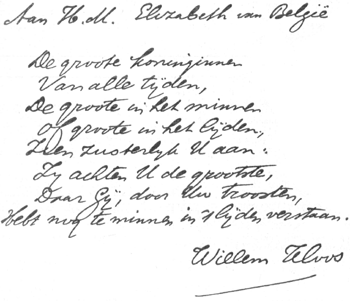 Aan H.M. Elizabeth van België
De groote koninginnen
Van alle tijden,
De groote in het minnen
Of groote in het lijden,
Zien zusterlijk U aan:
Zy achten U de grootste,
Daar Gij, door Uw troosten,
Hebt nog te minnen in 't lijden verstaan.
Willem Kloos